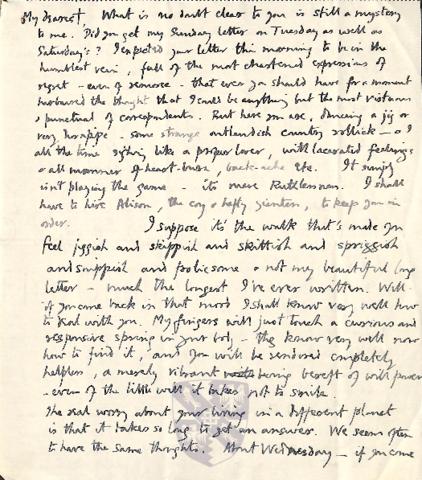 My dearest, What is no doubt clear to you is still a mystery
to me. Did you get my Sunday letter on Tuesday as well as
Saturday's? I expected your letter this morning to be in the
humblest vein, full of the most chastened expressions of
regret - even of remorse - that ever you should have for a moment
harboured the thought that I could be anything but the most virtuous
& punctual of correspondents. But here you are, dancing a jig or
very hornpipe - some strange outlandish country rollick - & I
all the time sighing like a proper lover, with lacerated feelings
& all manner of heart-burn, back-ache etc. It simply
isn't playing the game - its mere Ruthlessness. I shall
have to hire Alison, the coy & hefty, to keep you in
order. I suppose it's the walk that's made you
feel jiggish and skippish and skittish and spriggish
and suppish and frolicsome & not my beautiful long
letter - much the longest I've ever written. Well -
if you come back in that mood I shall know very well how
to deal with you. My fingers will just touch a curious and
responsive spring in your body - they know very well now
how to find it, and you will be rendered completely
helpless, a merely vibrant being bereft of will power
- even of the little will it takes not to smile.
The real worry about your living in a different planet
is that it takes so long to get an answer. We seem often
to have the same thoughts. About Wednesday - if you come